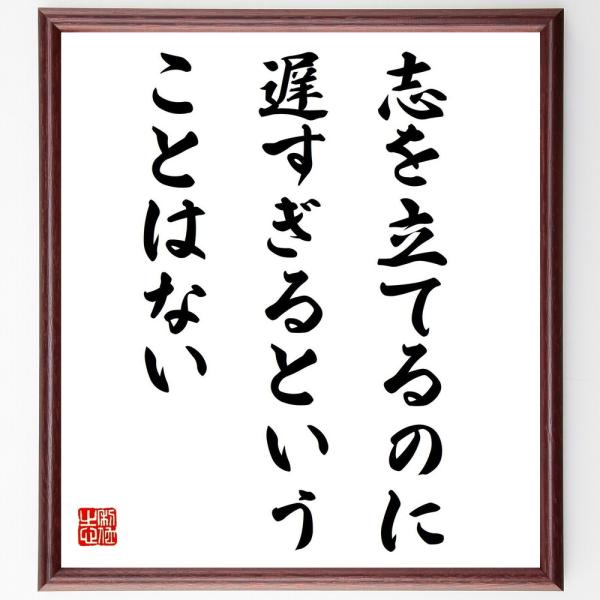 志を立てるのに
遅すぎるという
ことはない